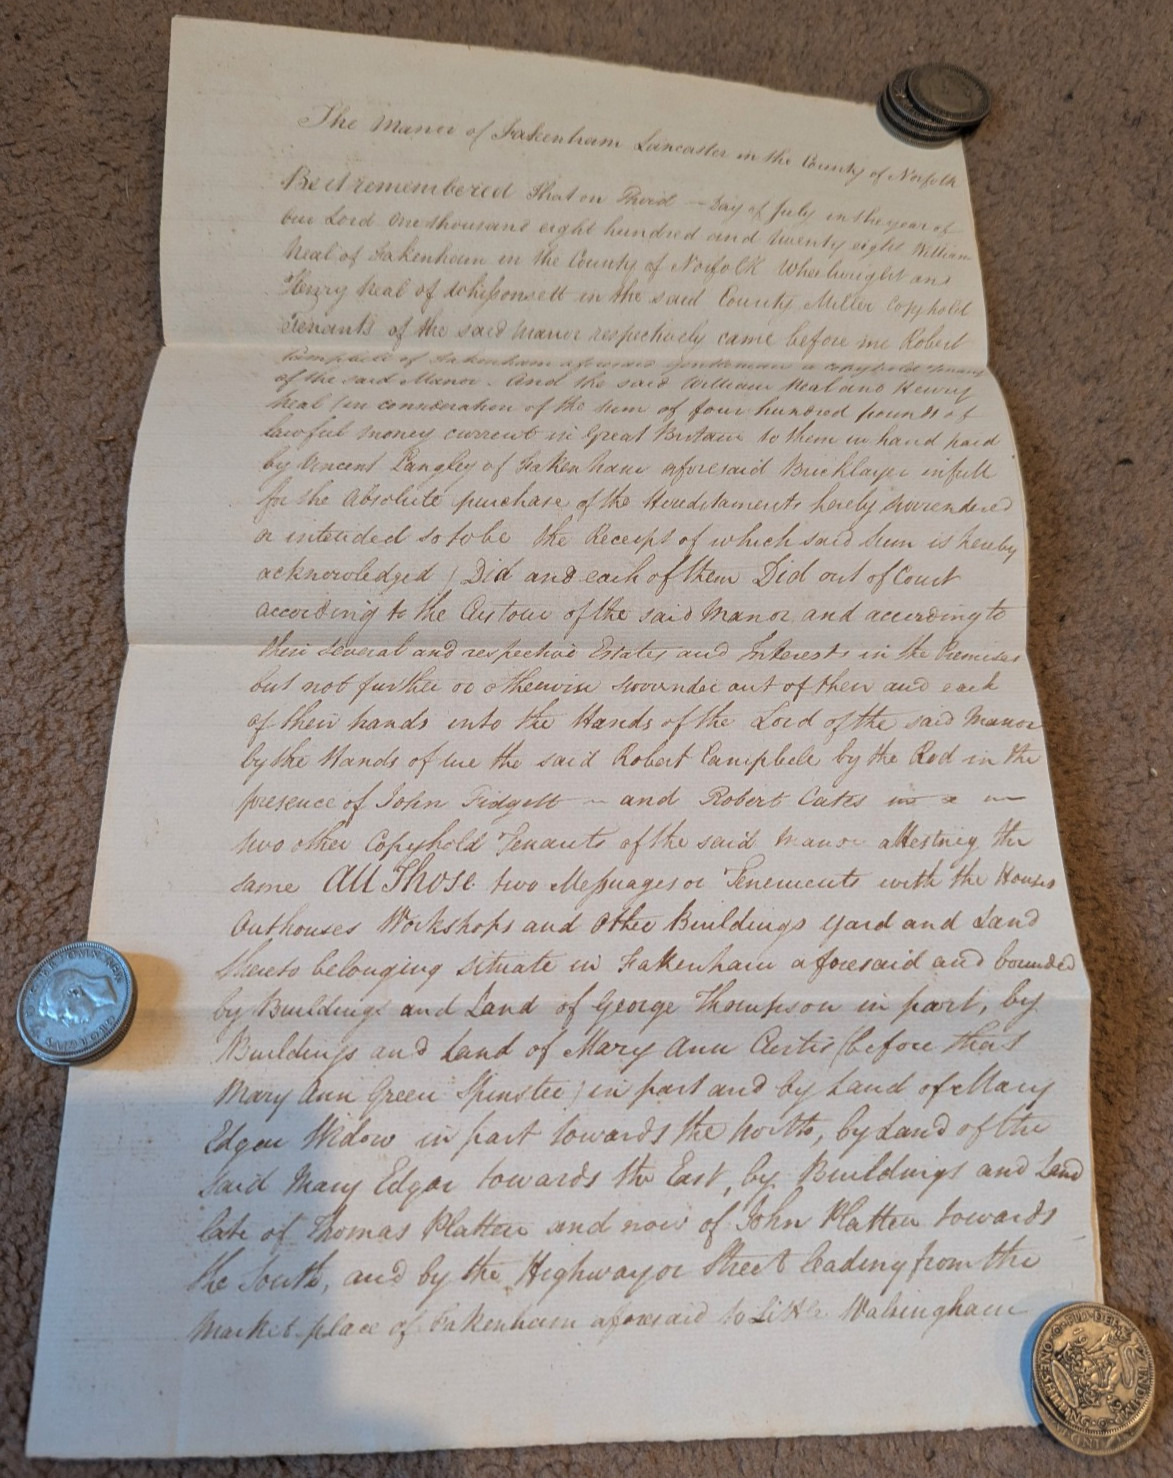 The Manor of Fakenham Lancaster in the County of Norfolk
Be it remembered that on Third — Day of July in the year of
our Lord One thousand eight hundred and twenty eight William
Neal of Fakenham in the County of Norfolk Wheelwright and
Henry Neal of Whissonsett in the said County Miller Copyhold
Tenants of the said Manor respectively came before me Robert
Campbell of Fakenham aforesaid Gentleman a copyhold Tenant
of the said Manor. And the said William Neal and Henry
Neal (in consideration of the sum of four hundred pounds of
lawful money current in Great Britain to them in hand paid
by Vincent Langley of Fakenham aforesaid Bricklayer in full
for the Absolute purchase of the Hereditaments hereby surrendered
or intended so to be the Receipt of which said Sum is hereby
acknowledged) Did and each of them Did out of Court
according to the Custom of the said Manor and according to
their several and respective Estates and Interests in the Premises
but not further or otherwise surrender out of their and each
of their hands into the Hands of the Lord of the said Manor
by the Hands of me the said Robert Campbell by the Rod in the
presence of John Pidgett — and Robert Cates
two other Copyhold Tenants of the said Manor attesting the
same All Those two Messuages or Tenements with the Houses
Outhouses Workshops and other Buildings yard and Land
thereto belonging situate in Fakenham aforesaid and bounded
by Buildings and Land of George Thompson in part, by
Buildings and Land of Mary Ann Curtis (before that
Mary Ann Green Spinster) in part and by Land of Mary
Edgar Widow in part towards the North, by Land of the
said Mary Edgar towards the East, by Buildings and Land
late of Thomas Platten and now of John Platten towards
the South, and by the Highway or Street leading from the
Market place of Fakenham aforesaid to Little Walsingham
GEORGIVS VI
FID: DEF: IND: IMP
ONE SHILLING